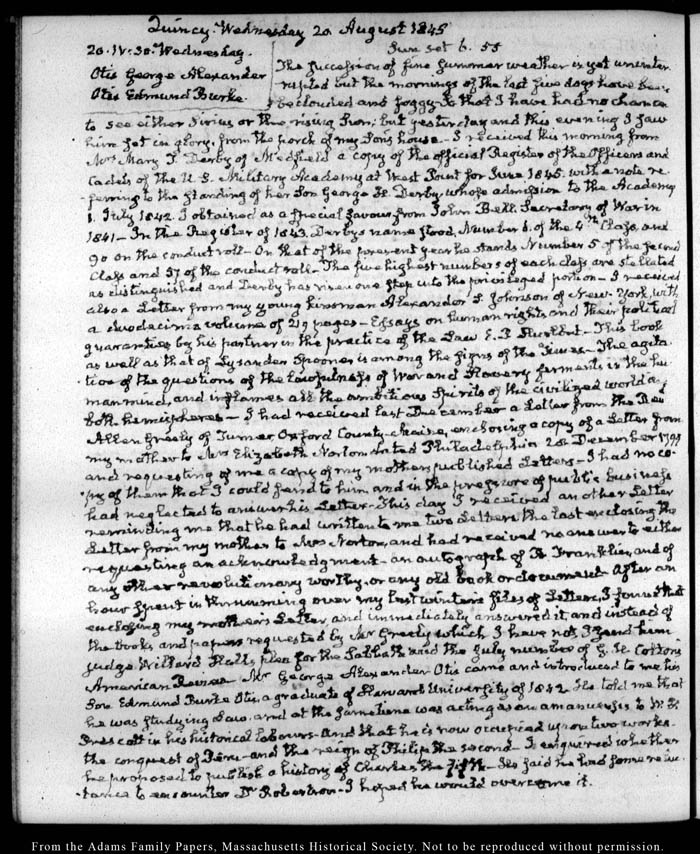 Quincy Wednesday 20. August 1845
20. IV:30. Wednesday.
Sun set 6. 55
Otis George Alexander
Otis Edmund Burke
The succession of fine summer weather is yet uninter-
rupted but the mornings of the last five days have been
beclouded and foggy so that I have had no chance
to see either Sirius or the rising Sun; but yesterday and this evening I saw
him set in glory, from the porch of my Son's house. I received this morning from
Mrs Mary T. Derby of Medfield a copy of the official Register of the Officers and
Cadets of the U.S. Military Academy at West Point for June 1845. with a note re-
ferring to the standing of her Son George H. Derby, whose admission to the Academy
1. July 1842. I obtained as a special favour from John Bell, Secretary of War in
1841 — In the Register of 1843. Derby's name stood, Number 6. of the 4th Class, and
90 on the conduct roll — On that of the present year he stands Number 5 of the second
Class and 57 of the conduct roll — The five highest numbers of each class are stellated
as distinguished and Derby has risen one step into the privileged portion — I received
also a Letter from my young kinsman Alexander S. Johnson of New-York, with
a duodecimo volume of 219 pages — Essays on human rights and their political
guaranties by his partner in the practice of the Law E. P. Hurlbut — This book
as well as that of Lysander Spooner is among the signs of the Times — The agita-
tion of the questions of the lawfulness of War and Slavery ferments in the hu-
man mind, and inflames all the ambitious Spirits of the civilized world in
both hemispheres — I had received last December a Letter from the Revd
Allen Greely of Turner, Oxford County, Maine, enclosing a copy of a Letter from
my mother to Mrs Elizabeth Norton dated Philadelphia 28 December 1799
and requesting of me a copy of my mother's published Letters — I had no co-
py of them that I could send to him and in the pressure of public business
had neglected to answer his Letter — This day I received another Letter
reminding me that he had written to me two Letters the last enclosing the
Letter from my mother to Mrs Norton, and had received no answer to either
requesting an acknowledgment — an autograph of Dr Franklin, and of
any other revolutionary worthy, or any old book or document — After an
hour spent in thrumming over my last winter's files of Letters, I found that
enclosing my mother's Letter and immediately answered it, and instead of
the books and papers requested by Mr Greely which I have not, I send him
Judge Willard Hall's plea for the Sabbath and the July number of G. H. Colton's
American Review — Mr George Alexander Otis came and introduced to me his
Son Edmund Burke Otis, a graduate of Harvard University of 1842. He told me that
he was studying Law, and at the same time was acting as an amanuensis to W. H.
Prescott in his historical labours — And that he is now occupied upon two works —
the conquest of Peru — and the reign of Philip the second — I enquired whether
he proposed to publish a history of Charles the fifth — He said he had some reluc-
tance to encounter Dr Robertson — I hoped he would overcome it.
From the Adams Family Papers, Massachusetts Historical Society. Not to be reproduced without permission.